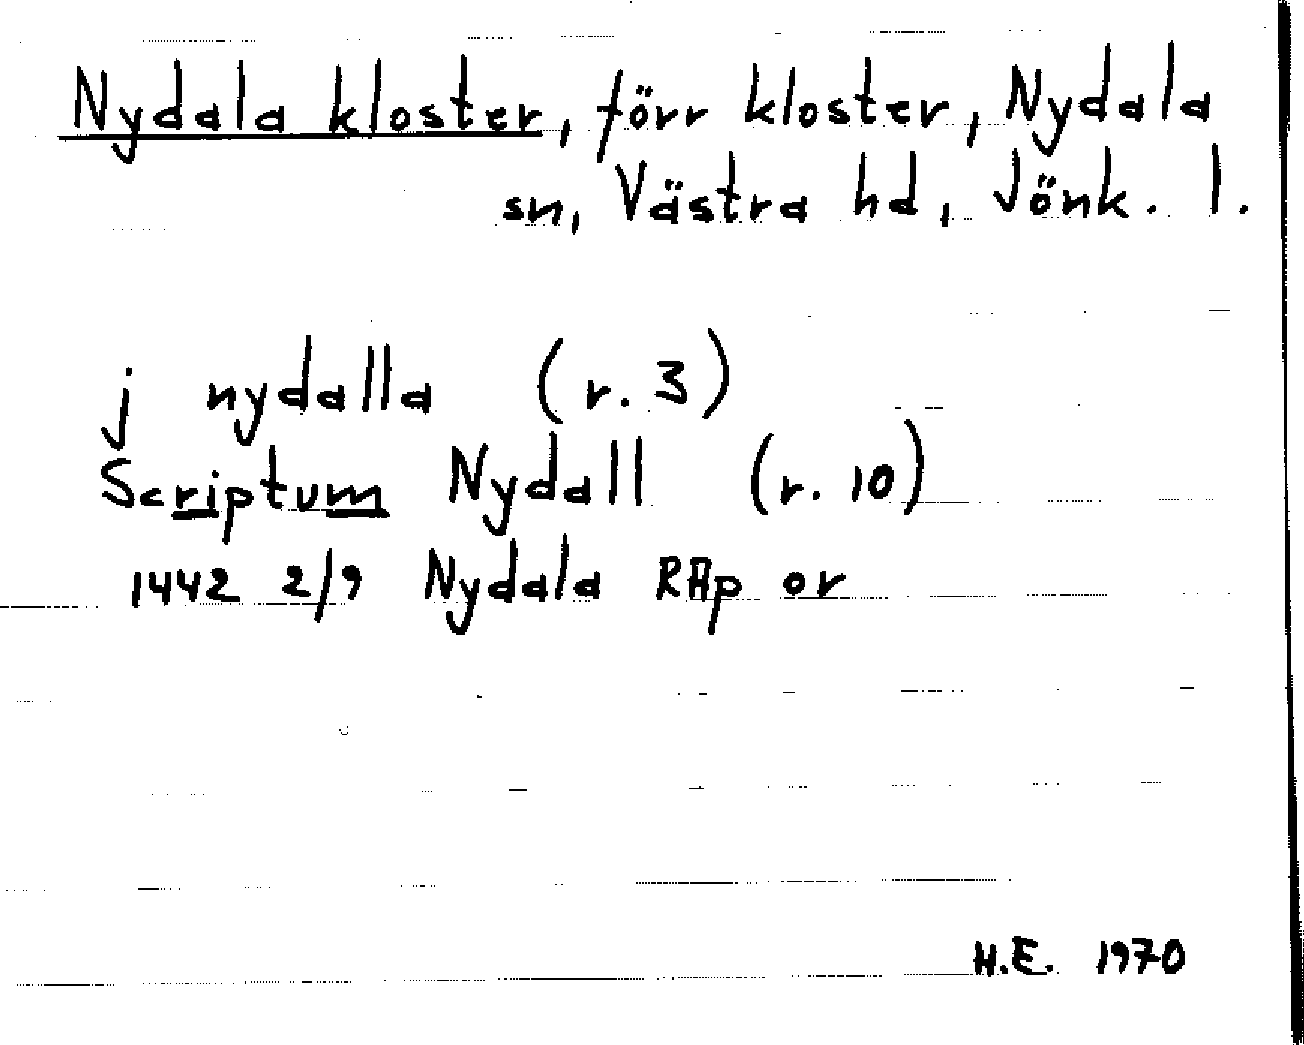 Nydala kloster, förr kloster, Nydala
sn, Västra hd, Jönk. l.
j nydalla (r. 3)
Scriptum Nydall (r. 10)
1442 2/9 Nydala RAp or
H.E. 1970